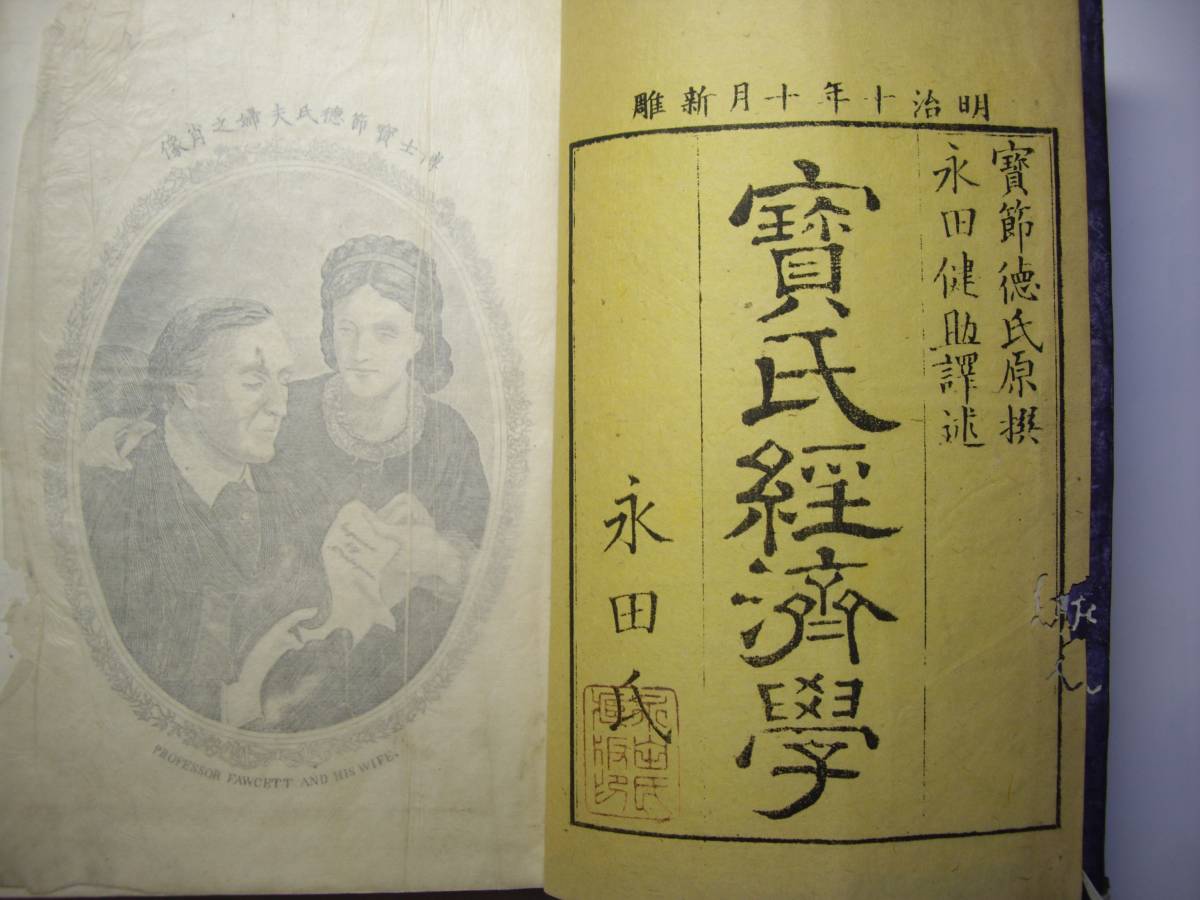 明治十年十月新雕
寶節德氏原撰
永田健助譯述
寶氏經濟學
永田氏
永田氏
藏版印
博士寶節德氏夫婦之肖像
PROFESSOR FAWCETT AND HIS WIFE.